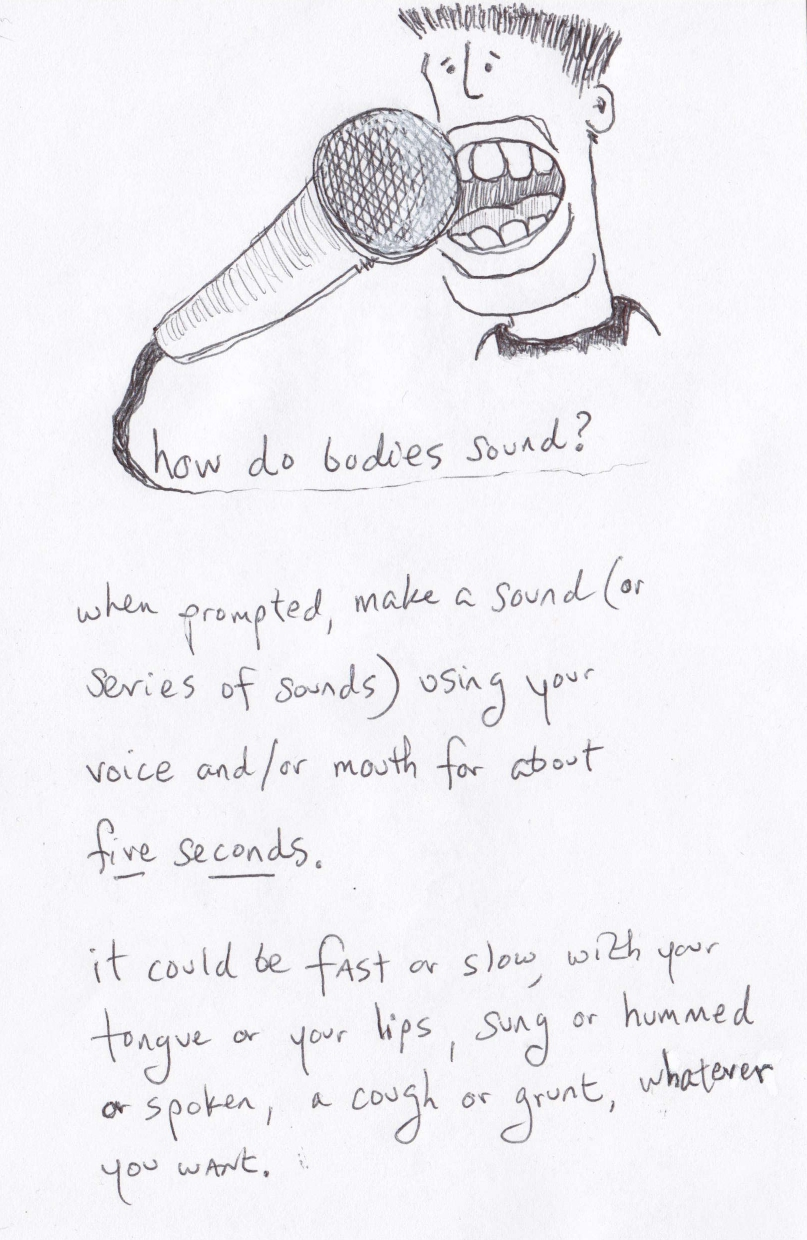 how do bodies sound?
when prompted, make a sound (or
series of sounds) using your
voice and/or mouth for about
five seconds.
it could be fAst or slow, with your
tongue or your lips, sung or hummed
or spoken, a cough or grunt, whatever
you wANt.